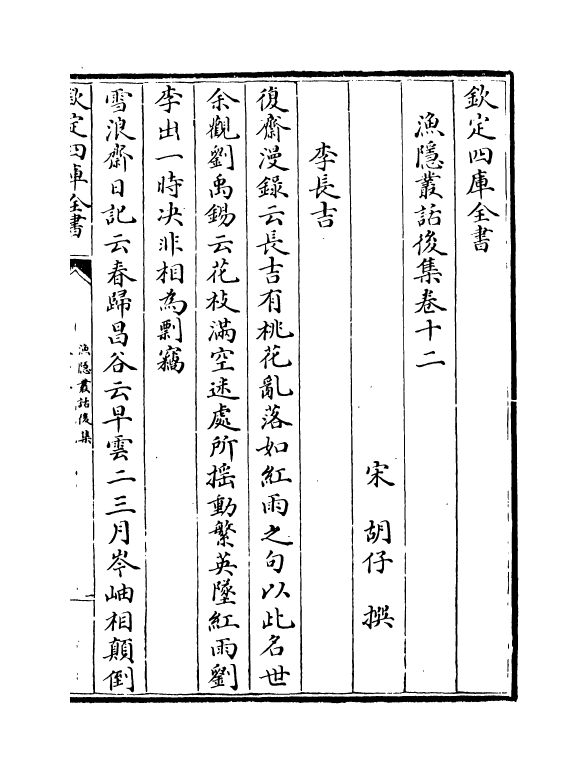 欽定四庫全書
漁隱叢話後集卷十二
宋 胡仔 撰
李長吉
復齋漫錄云長吉有桃花亂落如紅雨之句以此名世
余觀劉禹錫云花枝滿空迷處所揺動繁英墜紅雨劉
李出一時决非相為剽竊
雪浪齋日記云春歸昌谷云早雲二三月岑岫相顛倒
欽定四庫全書
漁隱叢話後集